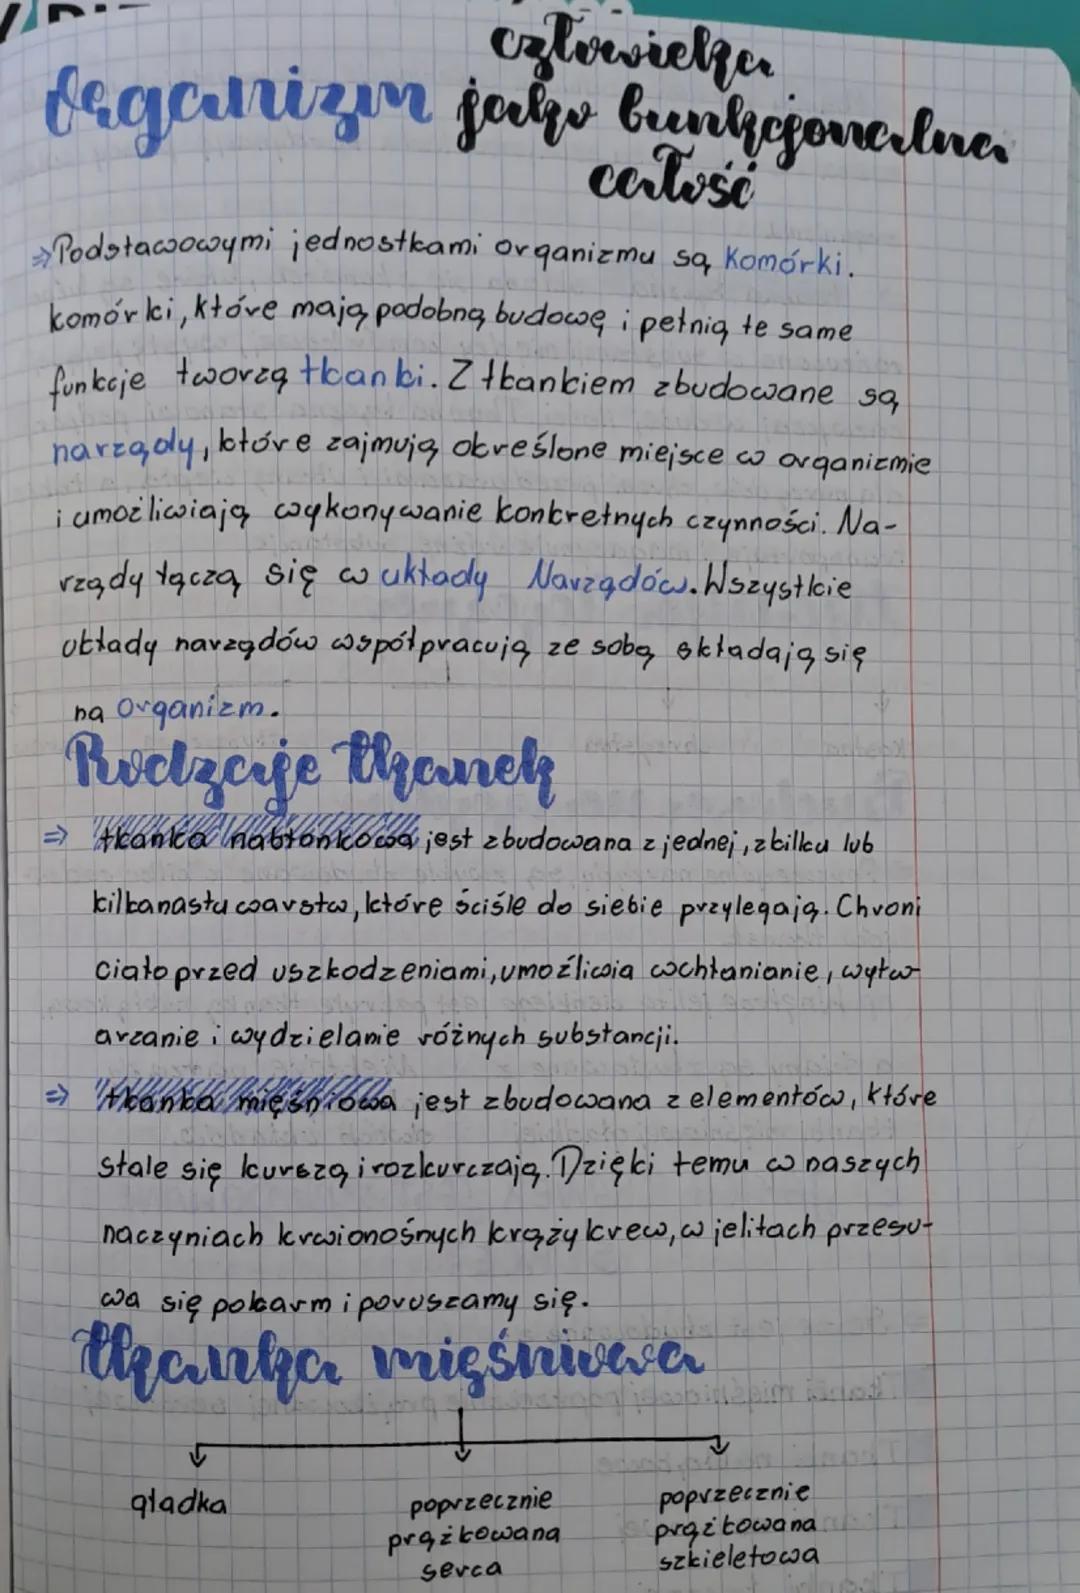 człowieka
Organizm jako funkcjonalna
całość
⇒ Podstawowymi jednostkami organizmu są komórki.
komórki, które mają podobną budowę i pełnią te same
funkcje tworzą tkanki. Z tkankiem zbudowane są
narządy, które zajmują określone miejsce w organizmie
i umożliwiają wykonywanie konkretnych czynności. Na-
rządy łączą się w układy Narządów. Wszystkie
układy narządów współpracują ze sobą składają się
na organizm.
Rodzaje tkanek
⇒ tkanka nabłonkowa jest zbudowana z jednej, z kilku lub
kilkanastu warstw, które ściśle do siebie przylegają. Chroni
ciało przed uszkodzeniami, umożliwia wchłanianie, wytw-
arzanie i wydzielanie różnych substancji.
⇒ tkanka mięśniowa jest zbudowana z elementów, które
stale się kurszą i rozkurczają. Dzięki temu w naszych
naczyniach krwionośnych krąży krew, w jelitach przesu-
wa się pokarm i poruszamy się.
tkanka mięśniowa
gładka poprzecznie poprzecznie
prążkowana prążkowana
serca szkieletowa